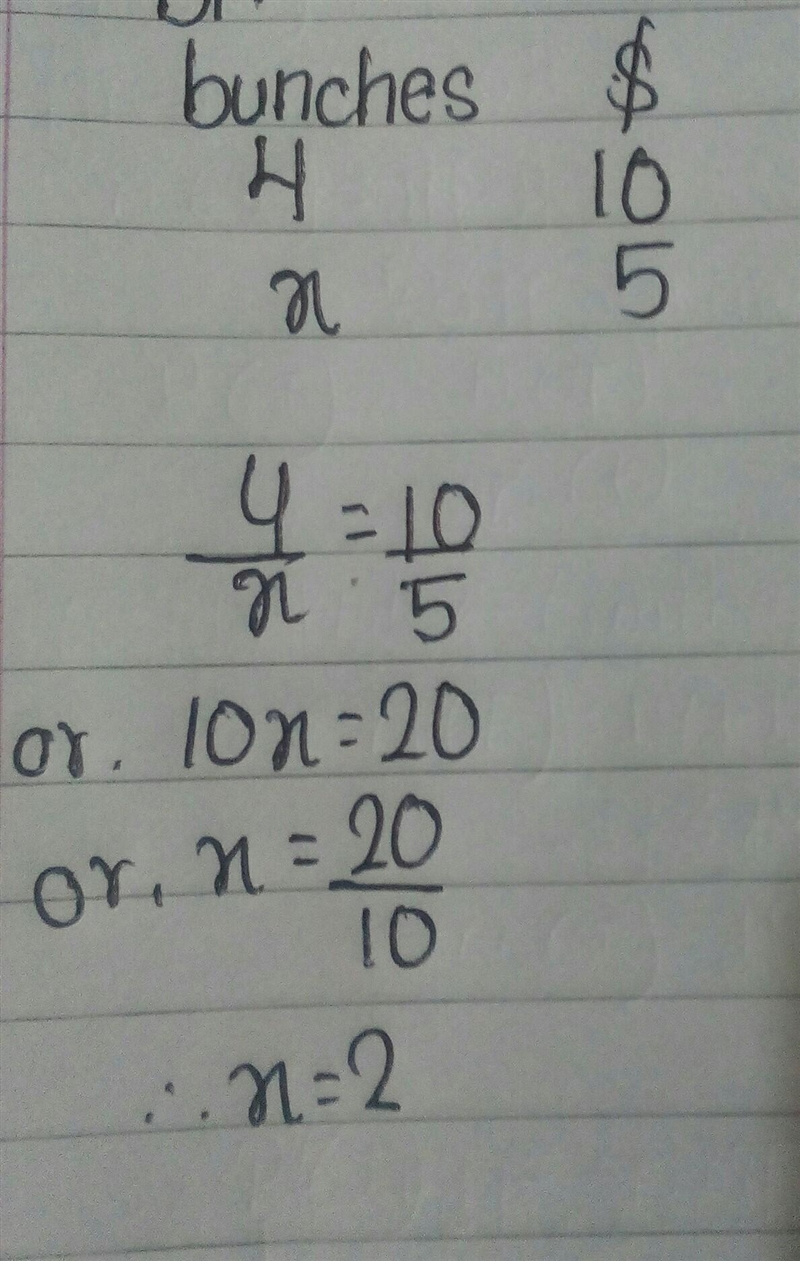 bunches $
4 10
x 5
4/x = 10/5
or. 10x = 20
or, x = 20/10
∴ x = 2